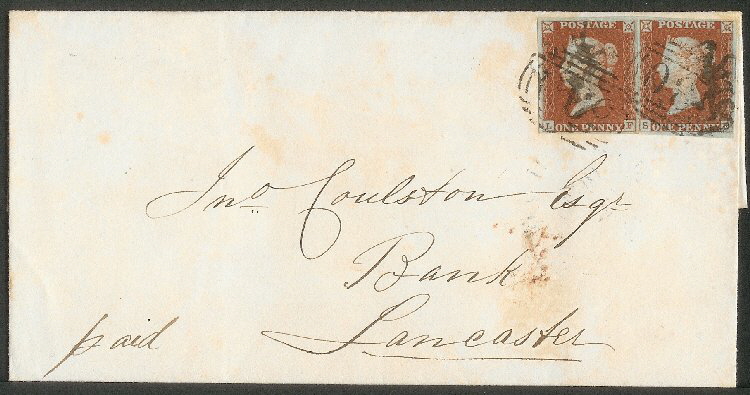 POSTAGE POSTAGE
L ONE PENNY F S ONE PENNY
Jno Coulston Esqr
Bank
Lancaster
paid